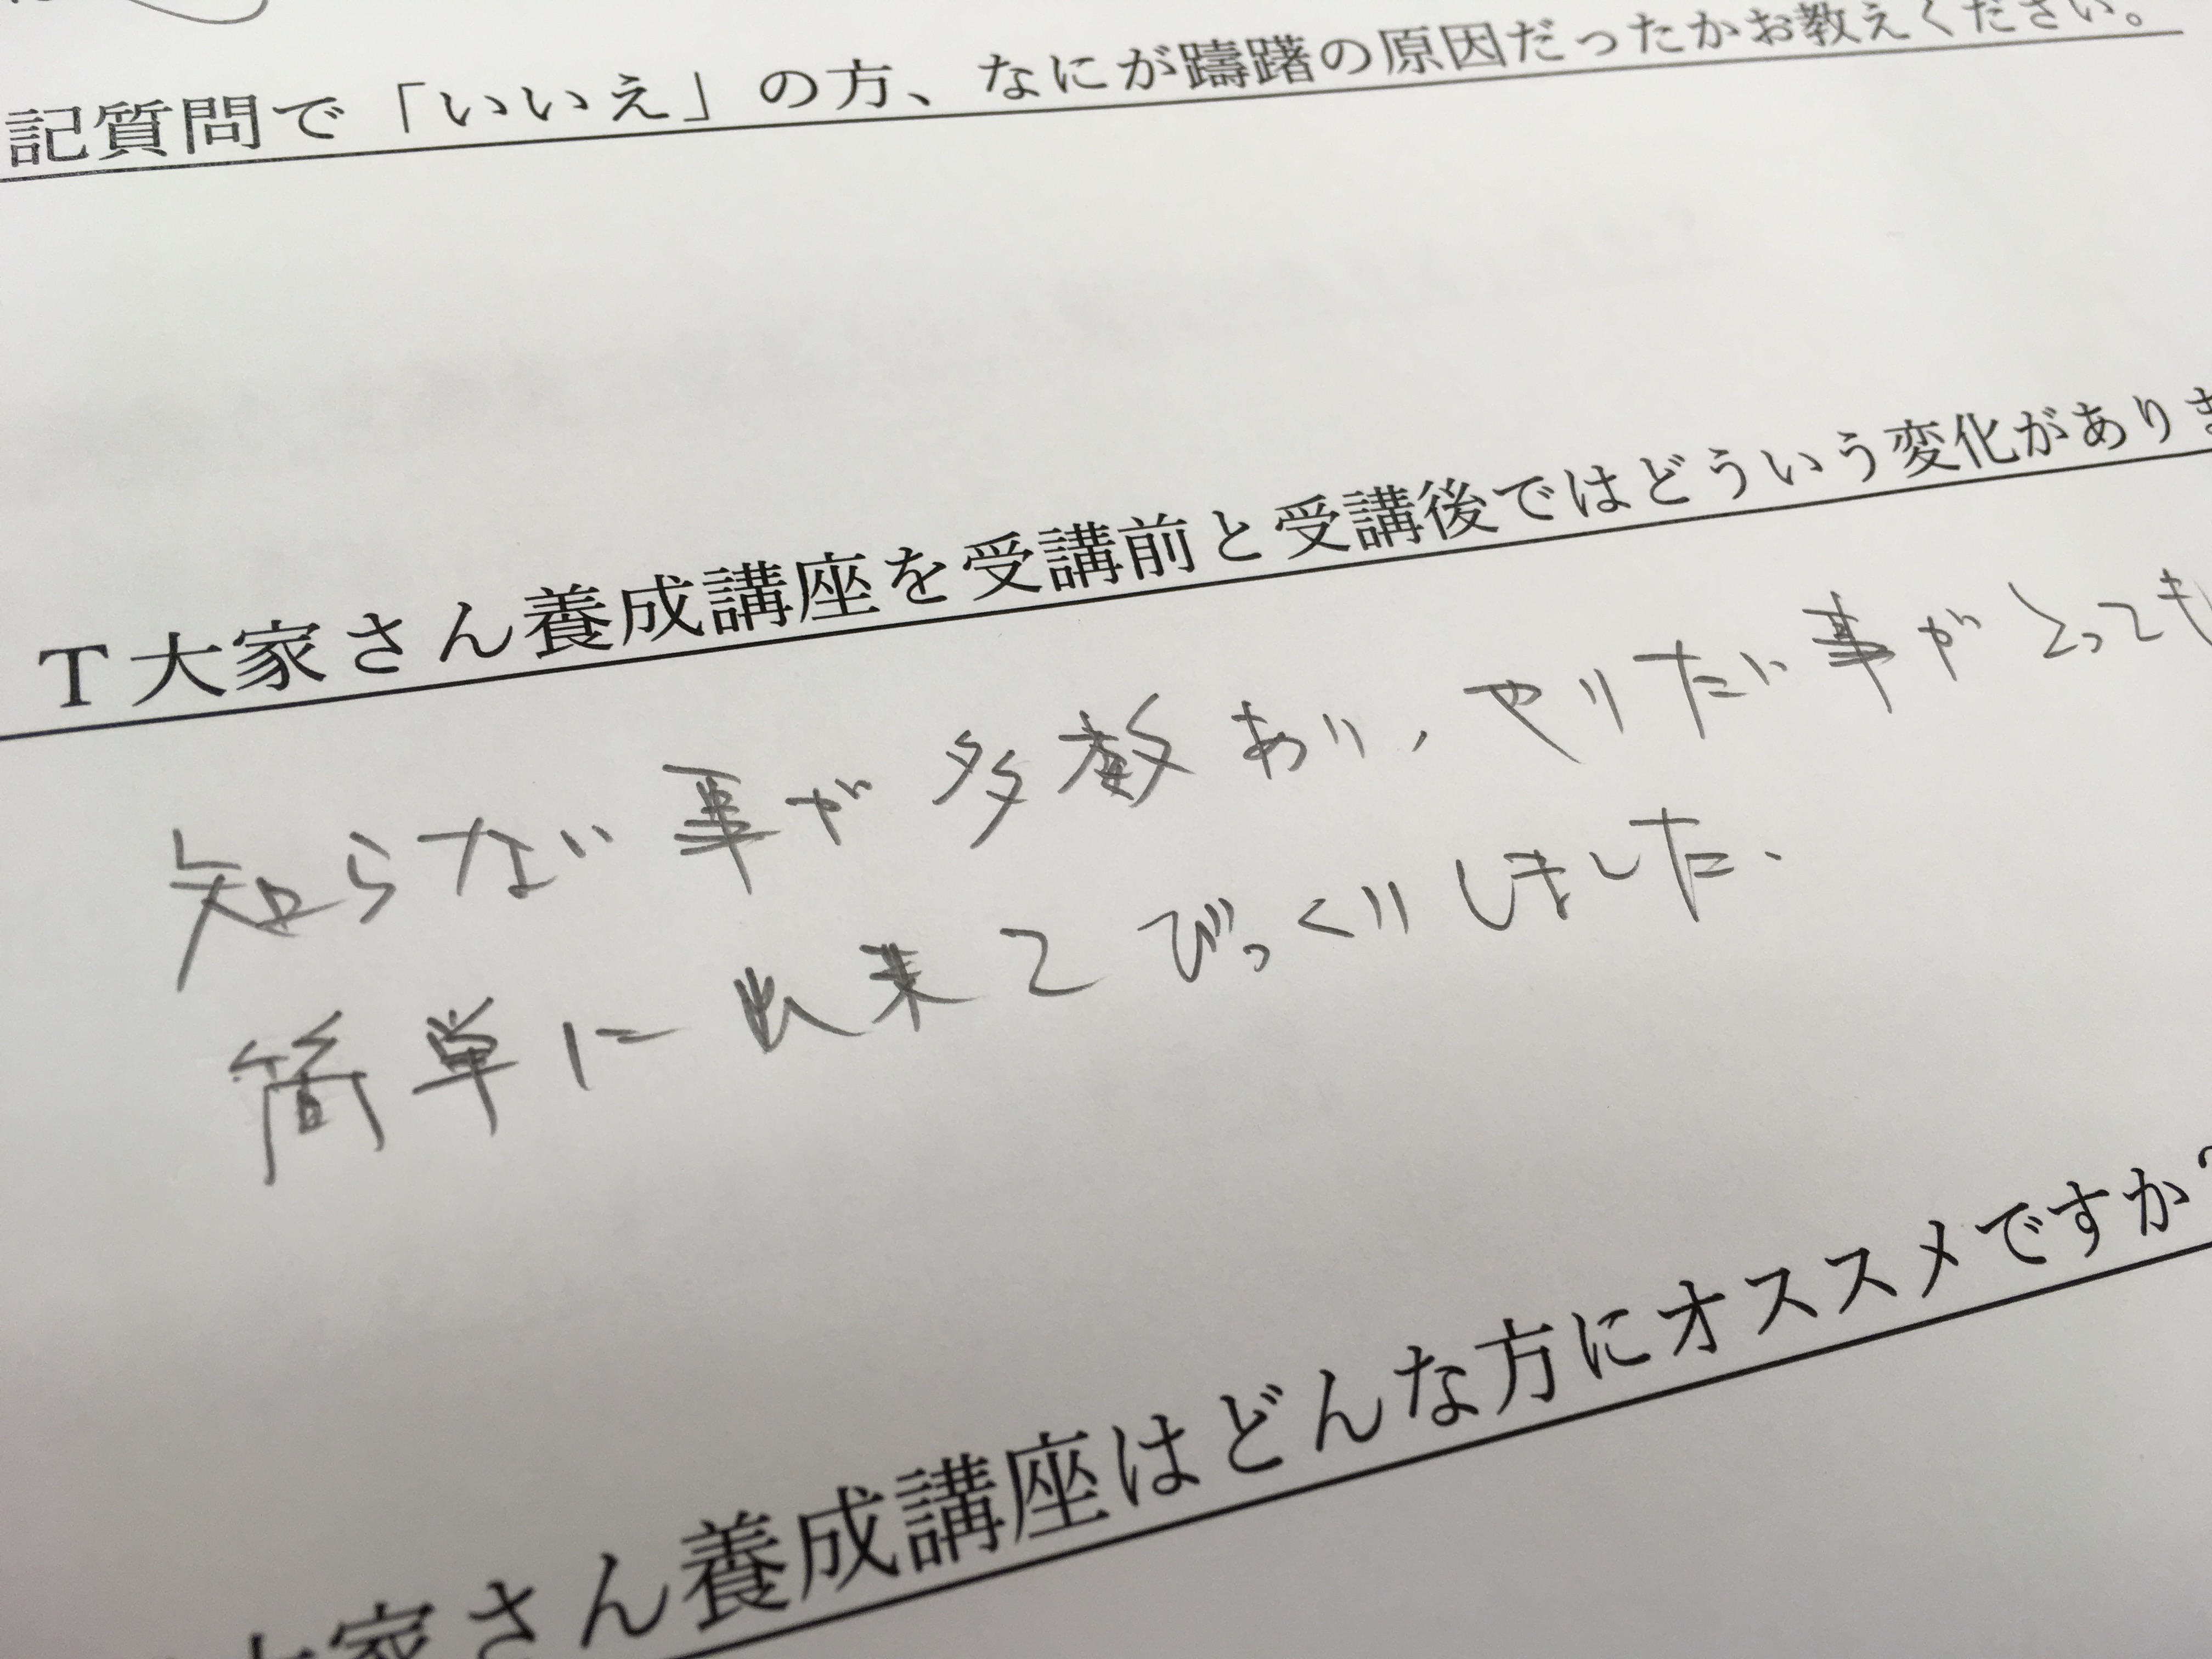 記質問で「いいえ」の方、なにが躊躇の原因だったかお教えください。
T大家さん養成講座を受講前と受講後ではどういう変化がありま
知らない事が多数あり、やりたい事がとっても
簡単に出来てびっくりしました.
大家さん養成講座はどんな方にオススメですか?